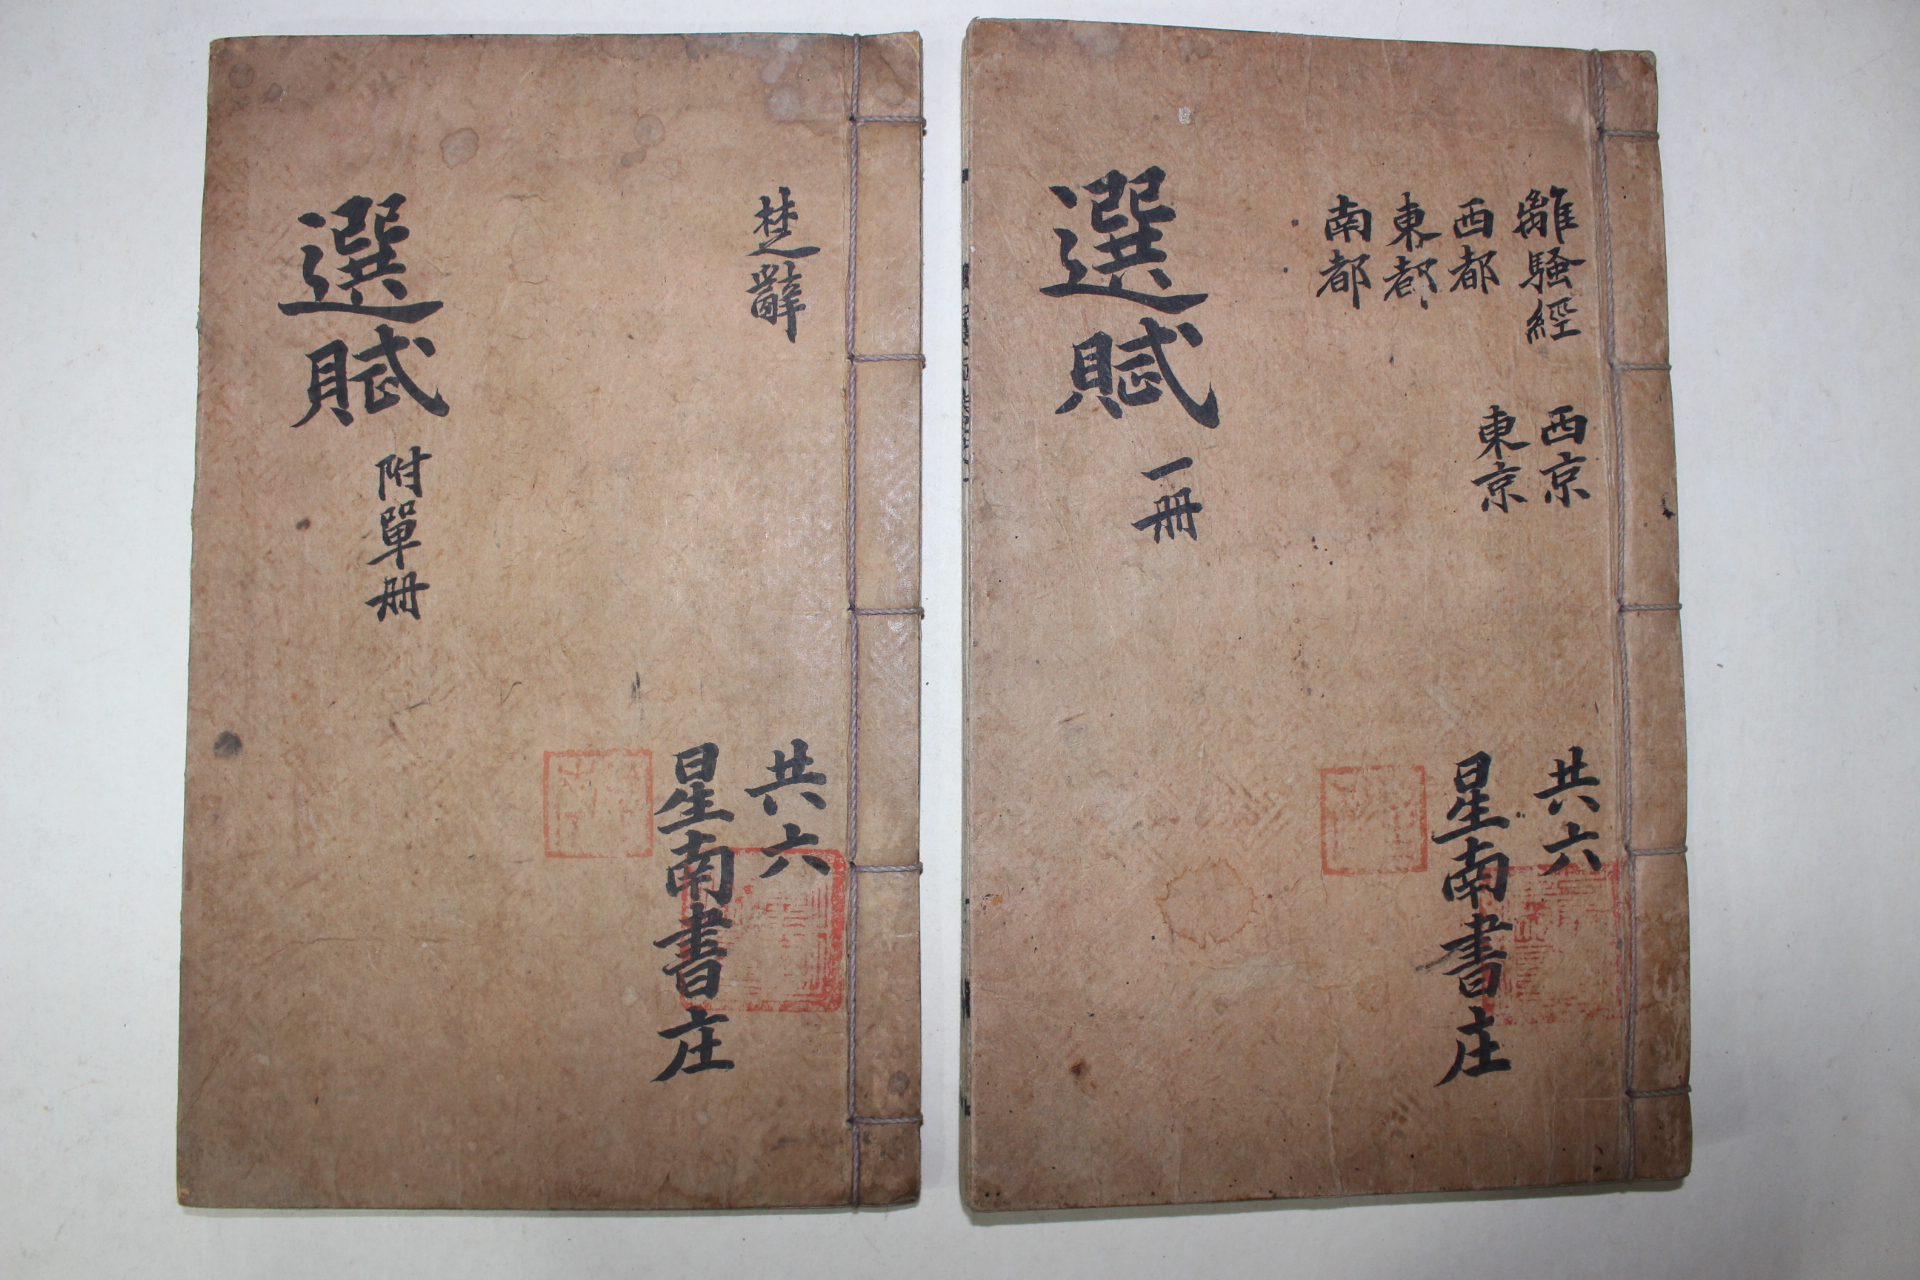 離騷經
西都
東都
南都
西京
東京
選賦
一冊
共六
星南書庄
楚辭
選賦
附單冊
共六
星南書庄